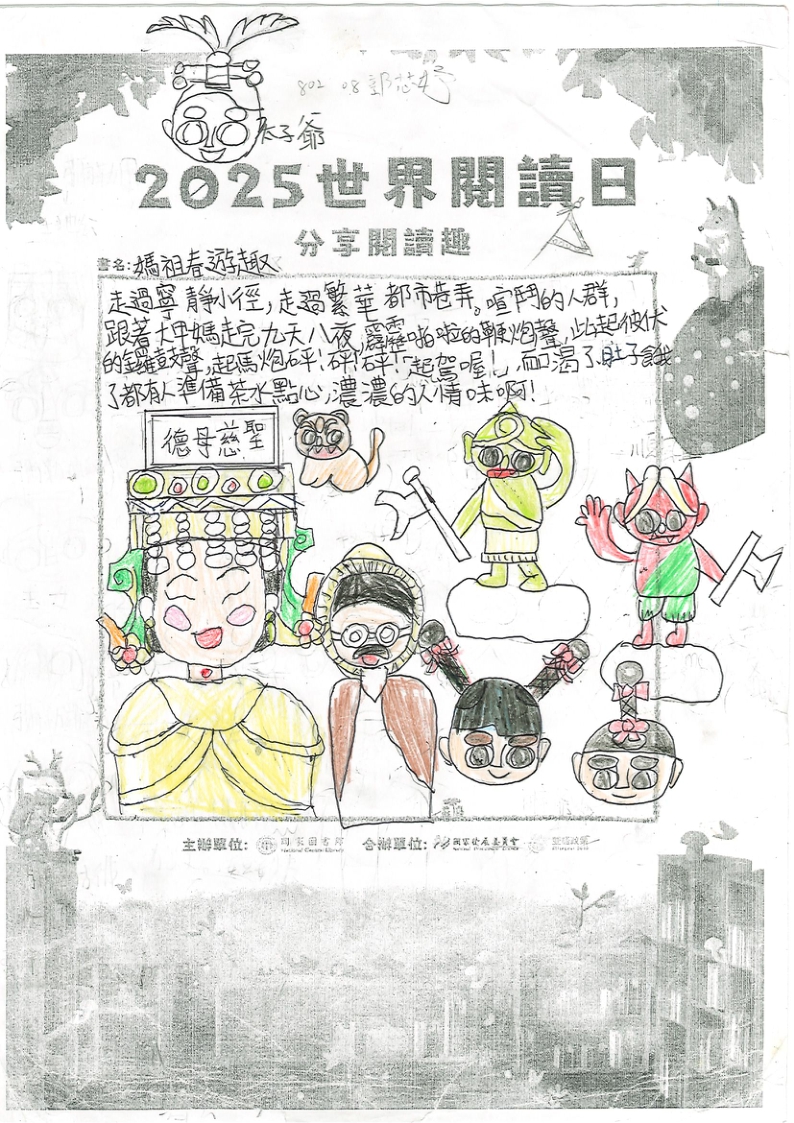 802 08
太子爺
2025世界閱讀日
分享閱讀趣
書名:媽祖春遊趣
走過寧靜小徑,走過繁華都市巷弄。喧鬥的人群,
跟著大甲媽走完九天八夜,霹靂啪啦的鞭炮聲,此起彼伏
的鑼鼓聲,起馬炮砰!砰!砰!「起駕喔!」而口渴了肚子餓
了都有人準備茶水點心,濃濃的人情味啊!
德母慈聖
主辦單位: 國家圖書館 合辦單位: 國家發展委員會